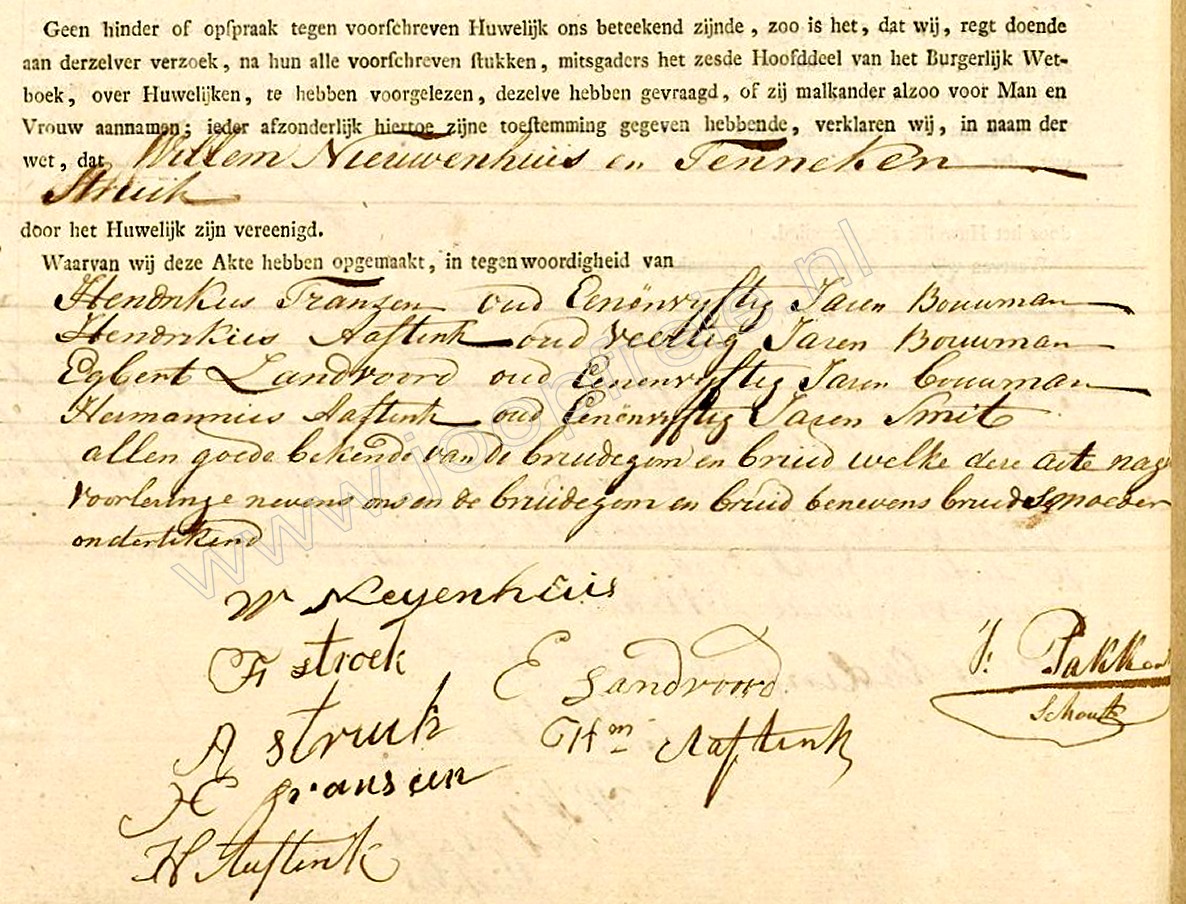 Geen hinder of opspraak tegen voorschreven Huwelijk ons beteekend zijnde, zoo is het, dat wij, regt doende
aan derzelver verzoek, na hun alle voorschreven stukken, mitsgaders het zesde Hoofddeel van het Burgerlijk Wet-
boek, over Huwelijken, te hebben voorgelezen, dezelve hebben gevraagd, of zij malkander alzoo voor Man en
Vrouw aannamen; ieder afzonderlijk hiertoe zijne toestemming gegeven hebbende, verklaren wij, in naam der
wet, dat Willem Nieuwenhuis en Fenneken
Struik
door het Huwelijk zijn vereenigd.
Waarvan wij deze Akte hebben opgemaakt, in tegenwoordigheid van
Hendrikus Franzen oud Eenënvyftig Jaren Bouwman
Hendrikus Aaftink oud veertig Jaren Bouwman
Egbert Landvoord oud Eenenvyftig Jaren bouwman
Hermannus Aaftink oud Eenënvyftig Jaren Smit
allen goede bekende van de bruidegom en bruid welke dese acte na
voorlesinge nevens ons en de bruidegom en bruid benevens bruids moeder
ondertekend
W Neyenhuis
F stroek
E Landvoord
J: Pakke
Schout
A struik
Hm Aaftink
H fransen
H Aaftink
www.joopfreije.nl